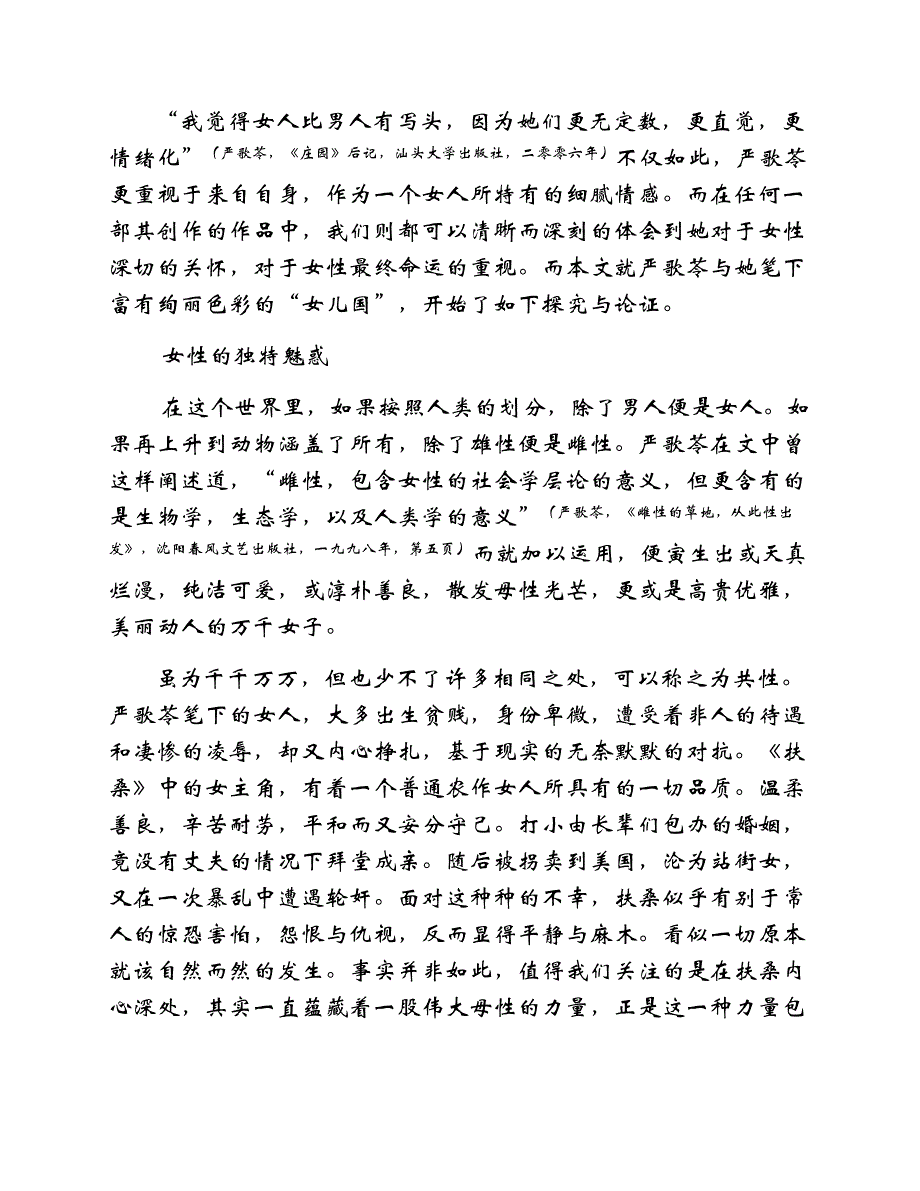 “我觉得女人比男人有写头，因为她们更无定数，更直觉，更
情绪化”（严歌苓，《庄园》后记，汕头大学出版社，二零零六年）不仅如此，严歌苓
更重视于来自自身，作为一个女人所特有的细腻情感。而在任何一
部其创作的作品中，我们则都可以清晰而深刻的体会到她对于女性
深切的关怀，对于女性最终命运的重视。而本文就严歌苓与她笔下
富有绚丽色彩的“女儿国”，开始了如下探究与论证。
女性的独特魅惑
在这个世界里，如果按照人类的划分，除了男人便是女人。如
果再上升到动物涵盖了所有，除了雄性便是雌性。严歌苓在文中曾
这样阐述道，“雌性，包含女性的社会学层论的意义，但更含有的
是生物学，生态学，以及人类学的意义”（严歌苓，《雌性的草地，从此性出
发》，沈阳春风文艺出版社，一九九八年，第五页）而就加以运用，便寅生出或天真
烂漫，纯洁可爱，或淳朴善良，散发母性光芒，更或是高贵优雅，
美丽动人的万千女子。
虽为千千万万，但也少不了许多相同之处，可以称之为共性。
严歌苓笔下的女人，大多出生贫贱，身份卑微，遭受着非人的待遇
和凄惨的凌辱，却又内心挣扎，基于现实的无奈默默的对抗。《扶
桑》中的女主角，有着一个普通农作女人所具有的一切品质。温柔
善良，辛苦耐劳，平和而又安分守己。打小由长辈们包办的婚姻，
竟没有丈夫的情况下拜堂成亲。随后被拐卖到美国，沦为站街女，
又在一次暴乱中遭遇轮奸。面对这种种的不幸，扶桑似乎有别于常
人的惊恐害怕，怨恨与仇视，反而显得平静与麻木。看似一切原本
就该自然而然的发生。事实并非如此，值得我们关注的是在扶桑内
心深处，其实一直蕴藏着一股伟大母性的力量，正是这一种力量包